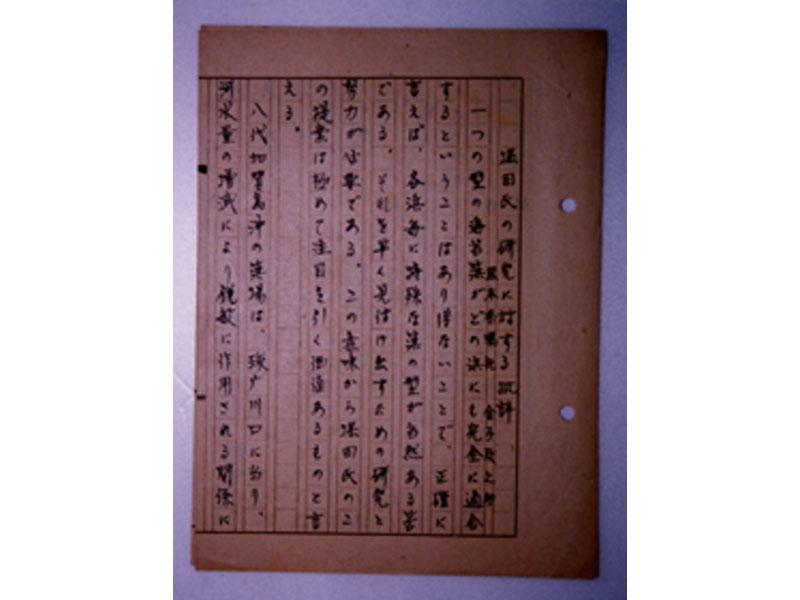 田氏の研究に対する批評
熊本県嘱託 金子政之
一つの型の海苔がどの浜にも完全に適合
するということはあり得ないことで、正確に
言えば、各浜毎に特殊なの型が当然ある筈
である、それを早く見付け出すための研究と
努力が必要である。この意味から田氏のこ
の提案は極めて注目を引く価値あるものと言
える。
八代島沖の漁場は、球广川口に当り、
河水量の増減により鋭敏に作用される関係に